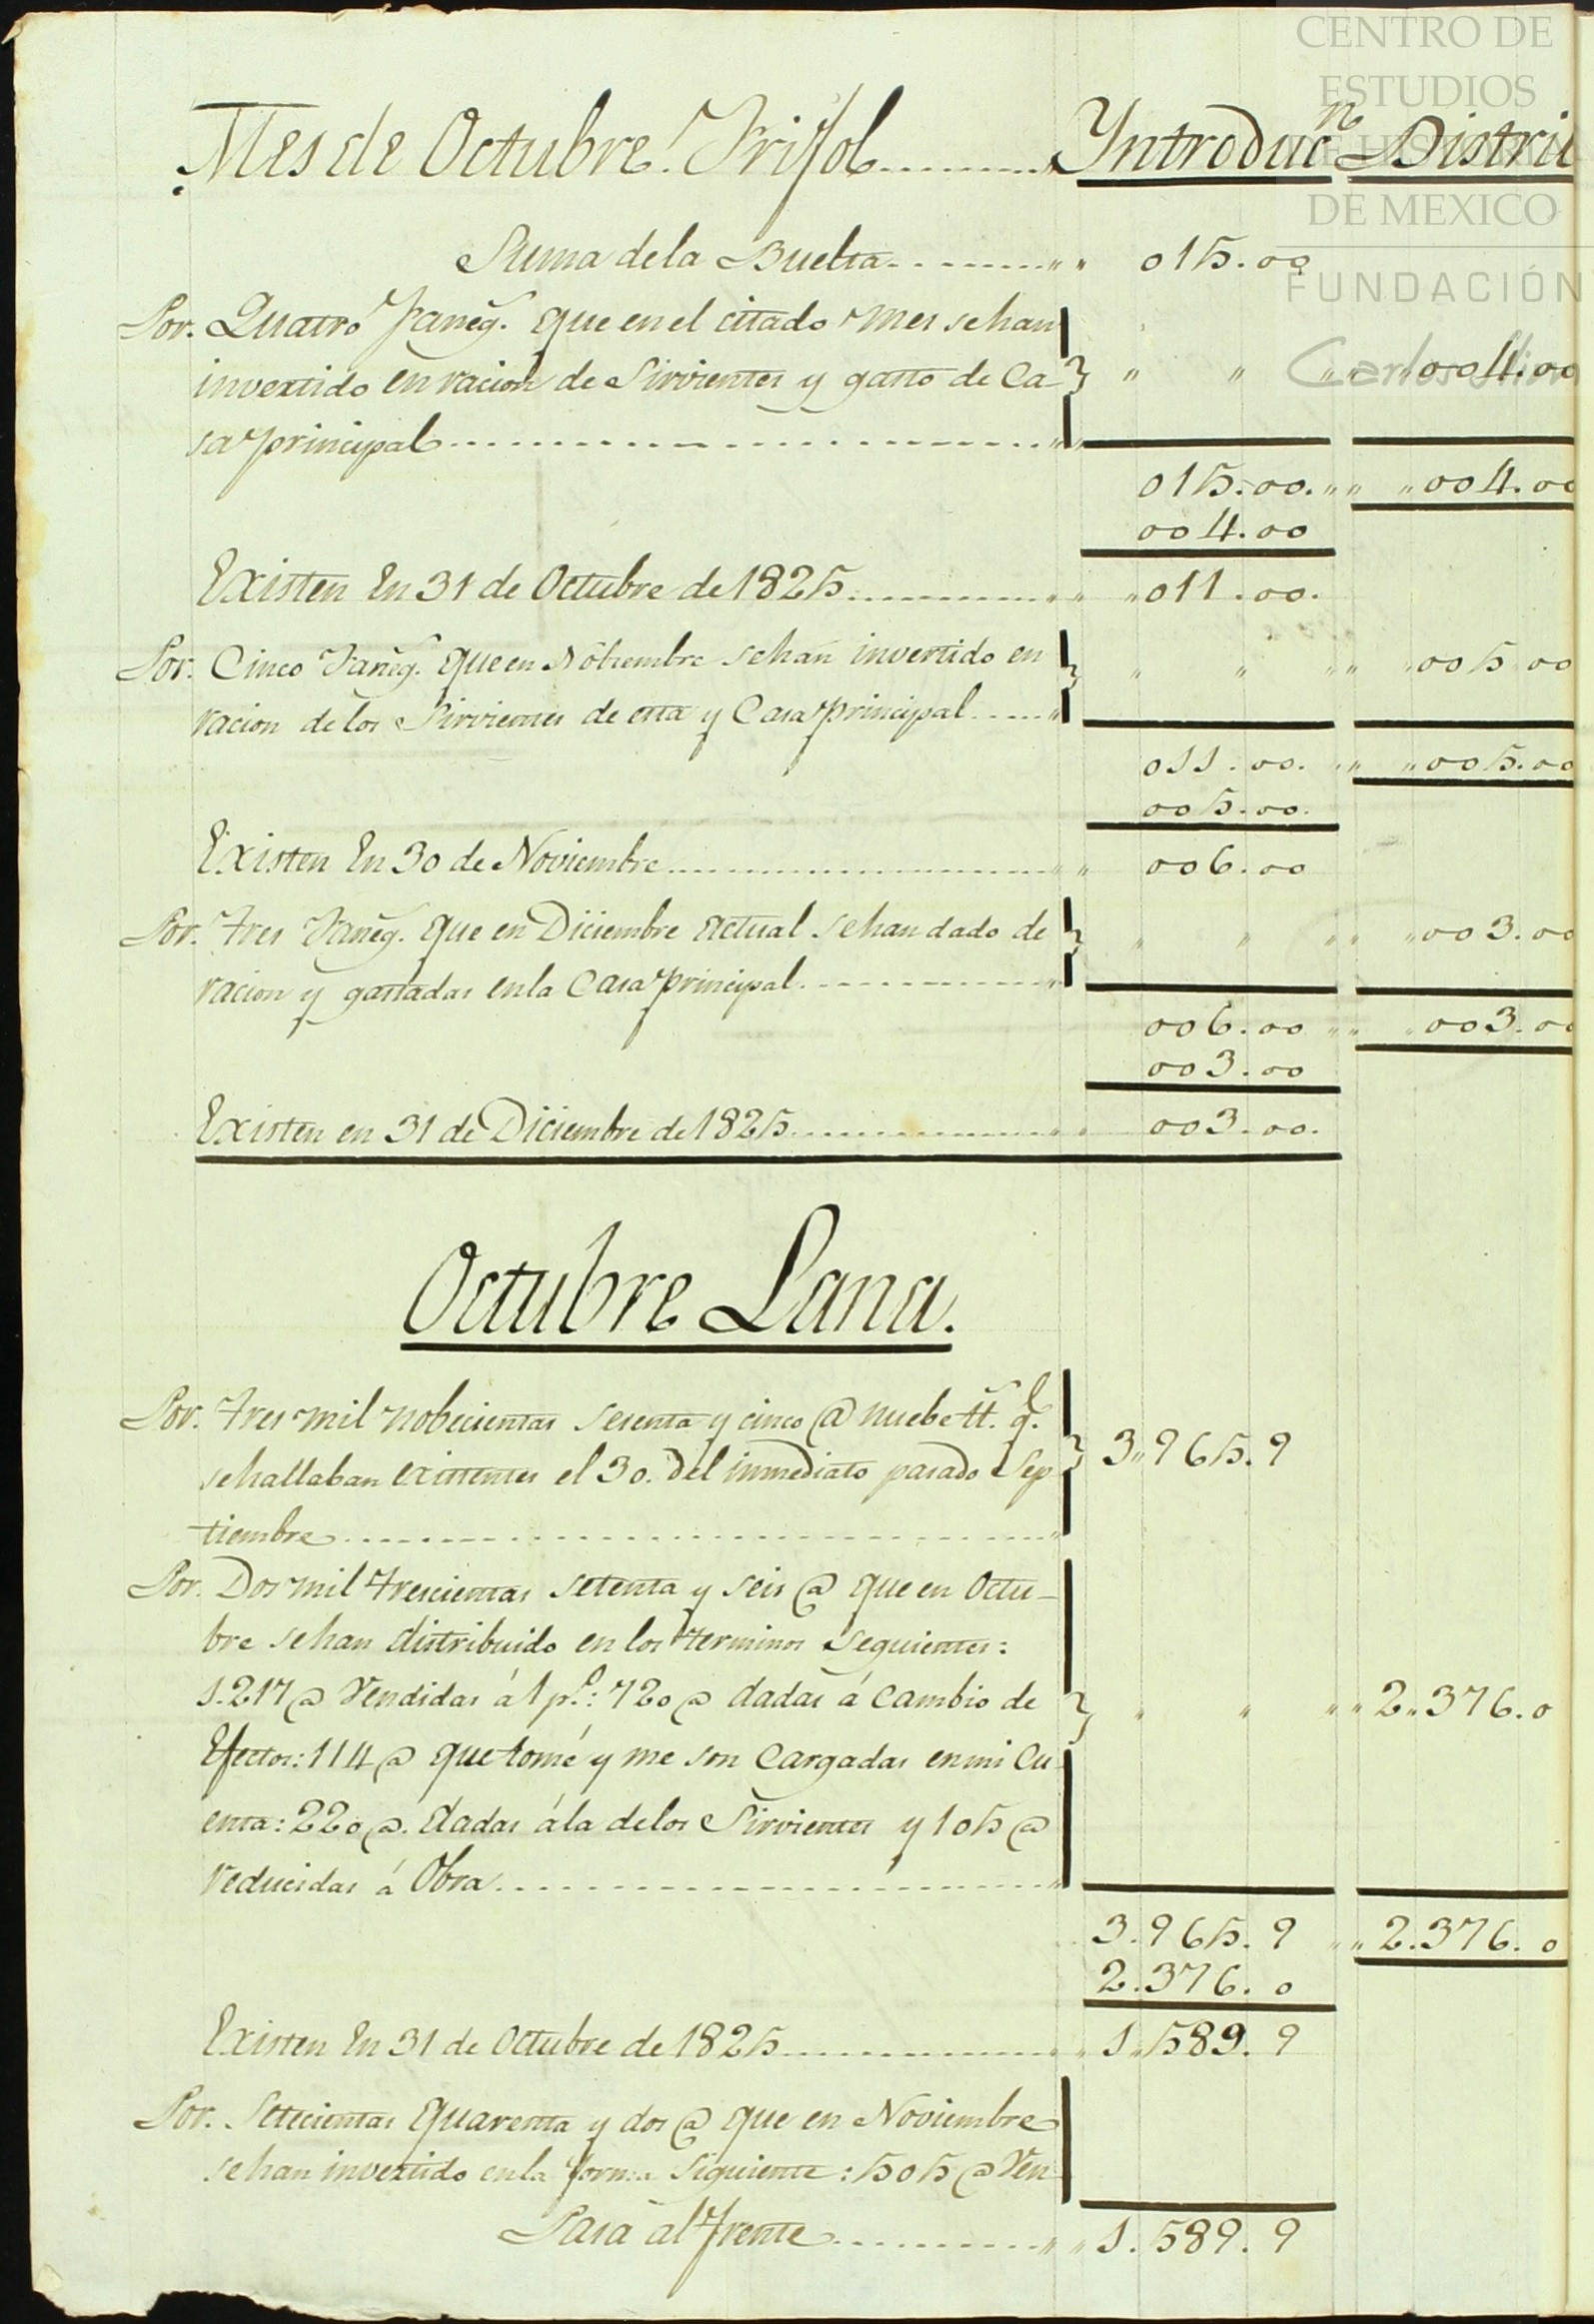 CENTRO DE
ESTUDIOS
DE HISTORIA
DE MEXICO
FUNDACIÓN
Carlos Slim
Mes de Octubre. Frijol Introducn Distri
Suma de la Buelta 015.00
Por. Quatro Faneg. que en el citado mes se han
invertido en racion de Sirvientes y gasto de Ca- " " " " " 004.00
sa principal
015.00. " " " 004.00
004.00
Existen En 31 de Octubre de 1825 " " " 011.00.
Por. Cinco Faneg. que en Nobiembre se han invertido en " " " " " 005.00
racion de los Sirvientes de esta y Casa principal
011.00. " " " 005.00
005.00.
Existen En 30 de Noviembre " " 006.00
Por. Tres Faneg. que en Diciembre actual se han dado de " " " " " 003.00
racion y gastadas en la Casa principal
006.00 " " " 003.00
003.00
Existen en 31 de Diciembre de 1825 " " 003.00.
Octubre Lana.
Por. Tres mil nobecientas sesenta y cinco @ nuebe tt. ql.
se hallaban existentes el 30. del inmediato pasado Sep 3"965.9
tiembre
Por. Dos mil trescientas setenta y seis @ que en Octu-
bre se han distribuido en los terminos seguientes:
1.217 @ Vendidas á 1 po.: 720 @ dadas á cambio de " " " " 2"376.0
Efectos: 114 @ que tomé y me son Cargadas en mi Cu-
enta: 220 @. dadas á la de los Sirvientes y 105 @
reducidas á Obra
3.965.9 " " 2.376.0
2.376.0
Existen En 31 de Octubre de 1825 " " 1"589.9
Por. Setecientas quarenta y dos @ que en Noviembre
se han invertido en la forma siguiente: 505 @ Ven
Pasa al frente " " 1.589.9